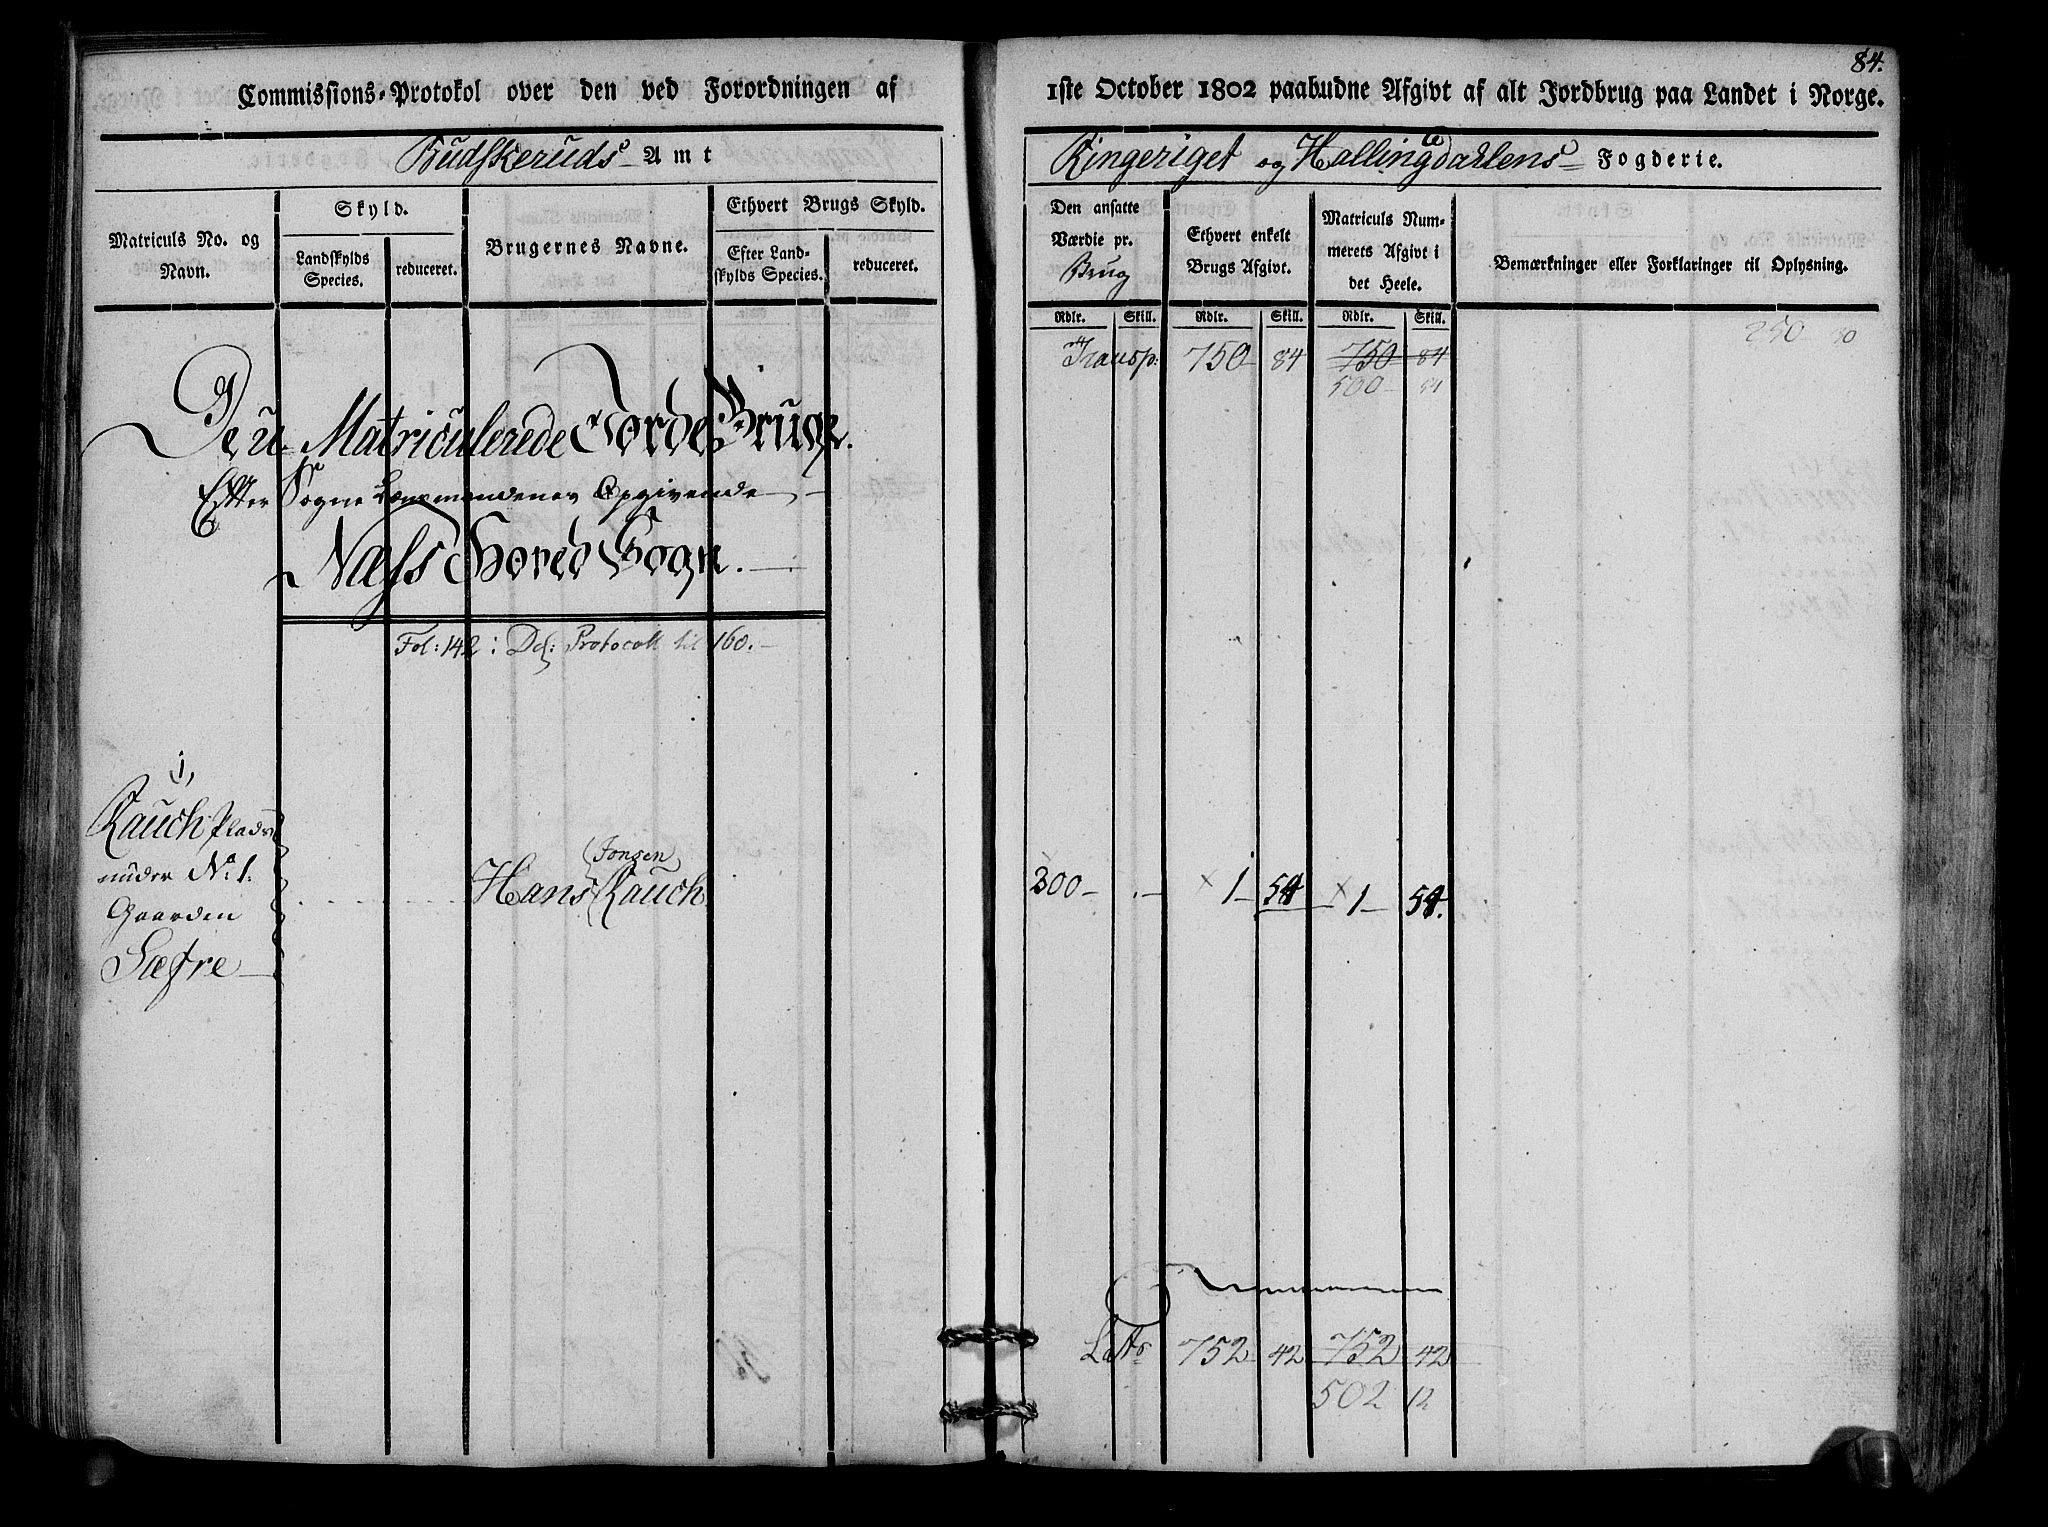 84.
Commissions-Protokol over den ved Forordningen af 1ste October 1802 paabudne Afgivt af alt Jordbrug paa Landet i Norge.
Budskeruds Amt Ringeriget og Hallingdahlens Fogderie.
Matriculs No. og Navn.
Skyld.
Landskylds Species.
reduceret.
Brugernes Navne.
Ethvert Brugs Skyld.
Efter Landskylds Species.
reduceret.
Den ansatte Værdie pr. Brug
Ethvert enkelt Brugs Afgivt.
Matriculs Nummerets Afgivt i det Heele.
Bemærkninger eller Forklaringer til Oplysning.
Rdlr. Skill. Rdlr. Skill. Rdlr. Skill.
250
Transp: 750 84 750 84
500 84
De u Matriculerede Jorde Bruge.
Efter Sogne Lænsmandenes Opgivende
Næss Hoved Sogn.
Fol: 142 : Ds: Protocoll til 160.
1,
Rauch Plads
under No 1: Hans Jonsen Rauch. 300 - . - 1 54 1 54.
Gaarden
Sæfre
Lats 752 42 752 42
502 12